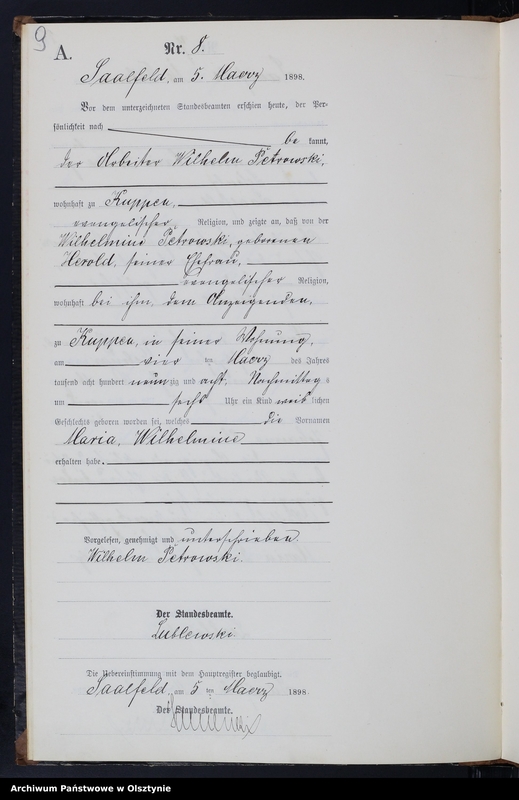 9
A.
Nr. 8.
Saalfeld, am 5. Maerz 1898.
Vor dem unterzeichneten Standesbeamten erschien heute, der Per-
sönlichkeit nach
be kannt,
der Arbeiter Wilhelm Petrowski,
wohnhaft zu Kuppen,
evangelischer Religion, und zeigte an, daß von der
Wilhelmine Petrowski, geborenen
Herold, seiner Ehefrau,
evangelischer Religion,
wohnhaft bei ihm, dem Anzeigenden,
zu Kuppen, in seiner Wohnung,
am vier ten Maerz des Jahres
tausend acht hundert neunzig und acht, Nachmittag s
um sechs Uhr ein Kind weib lichen
Geschlechts geboren worden sei, welches die Vornamen
Maria, Wilhelmine
erhalten habe.
Vorgelesen, genehmigt und unterschrieben.
Wilhelm Petrowski.
Der Standesbeamte.
Lublewski
Die Uebereinstimmung mit dem Hauptregister beglaubigt.
Saalfeld, am 5 ten Maerz 1898.
Der Standesbeamte.
Archiwum Państwowe w Olsztynie